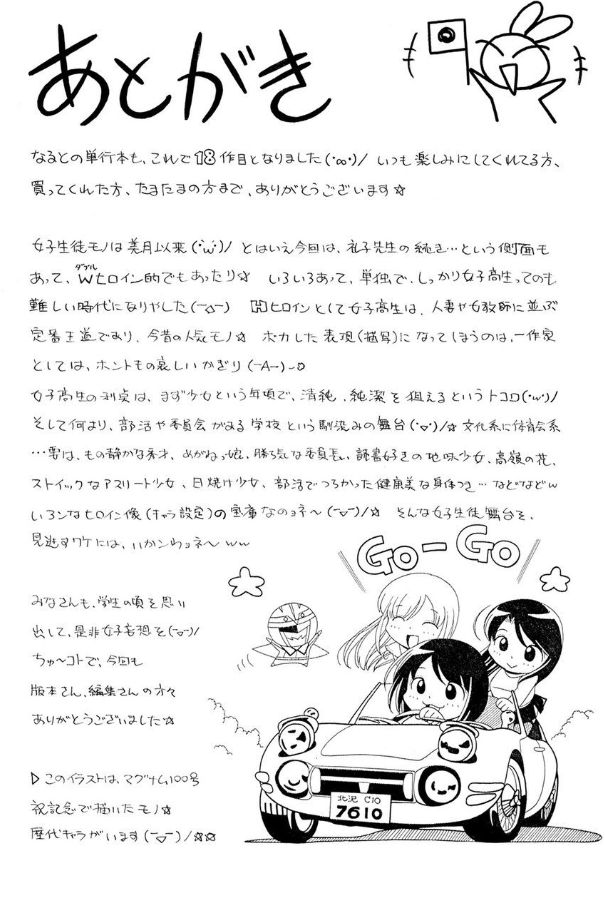 あとがき
なるとの単行本も、これで18作目となりました(･∞･)/ いつも楽しみにしてくれてる方、
買ってくれた方、たまたまの方まで、ありがとうございます☆
女子生徒モノは美月以来(･ω･)/ とはいえ今回は、礼子先生の続き…という側面も
あって、Wヒロイン的でもあったり☆ いろいろあって、単独で、しっかり女子高生ってのも
ダブル
難しい時代になりやした(ー△ー) Hヒロインとして女子高生は、人妻や女教師に並ぶ
定番王道であり、今昔の人気モノ☆ ボカした表現(描写)になってしまうのは、一作家
としては、ホントもの哀しいかぎり(ーAー)
女子高生の利点は、まず少女という年頃で、清純、純潔を狙えるというトコロ(･ω･)/
そして何より、部活や委員会がある学校という馴染みの舞台(･▽･)/☆ 文化系に体育会系
…要は、もの静かな秀才、めがねっ娘、勝ち気な委員長、読書好きの地味少女、高嶺の花、
ストイックなアスリート少女、日焼け少女、部活でつちかった健康美な身体つき…などなどw
いろンなヒロイン像(キャラ設定)の宝庫なのョネ〜(ー▽ー)/☆ そんな女子生徒舞台を、
見逃すワケには、いかンわョネ〜ww
みなさんも、学生の頃を思い
出して、是非女子妄想を(ー▽ー)/
ちゅ〜コトで、今回も
版本さん、編集さんの方々
ありがとうございました☆
▷このイラストは、マグナム100号
祝記念で描いたモノ☆
歴代キャラがいます(ー▽ー)/☆☆
GO-GO
北況 C10
7610